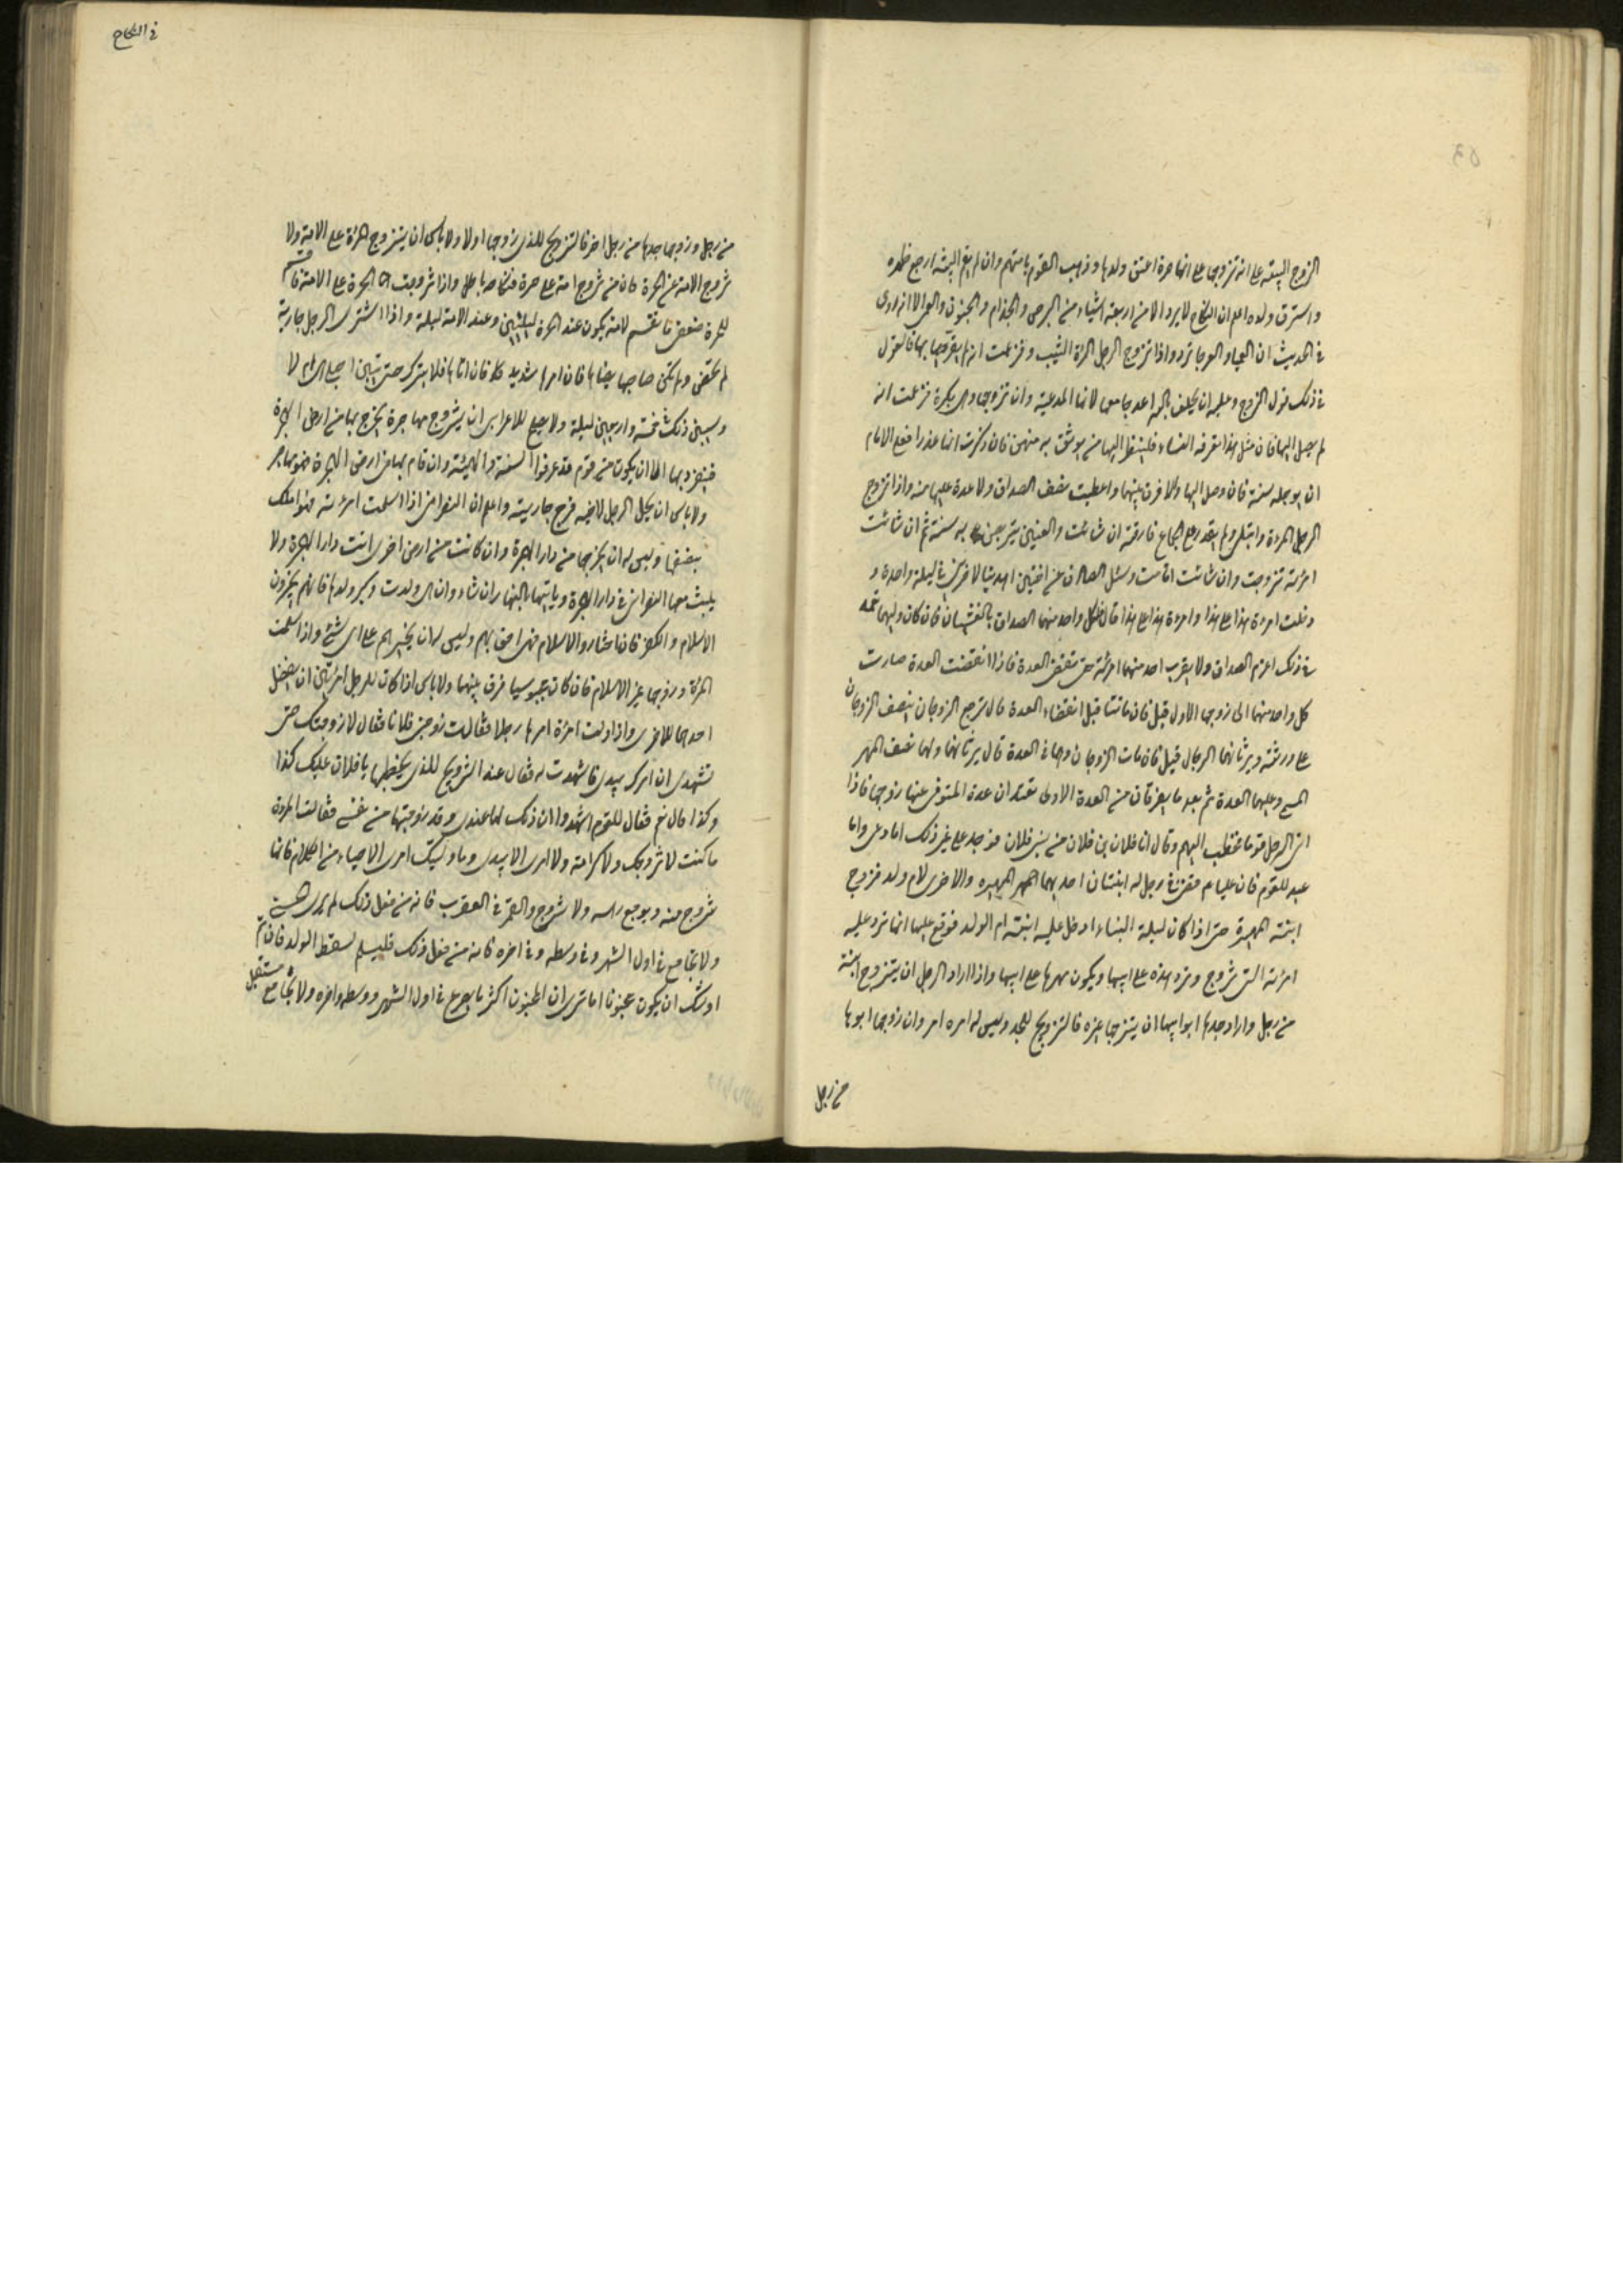 الزوج البينة على انه تزوجها على انها حرة اعتق ولدها وذهب القوم بامتهم وان لم يقم البينة اوجع ظهره
واسترق ولده اعلم ان النكاح لا يرد الا من اربعة اشياء من البرص والجذام والجنون والعفل الا انه روى
في الحديث ان العمياء والعرجاء ترد واذا تزوج الرجل المرأة الثيب وزعمت انه لم يقربها فالقول
في ذلك قول الزوج وعليه ان يحلف بالله لقد جامعها لانها المدعية وان تزوجها وهى بكر فزعمت انه
لم يصل اليها فان مثل هذا تعرفه النساء فلينظر اليها من يوثق به منهن فان ذكرت انها عذراء فعلى الامام
ان يوجله سنة فان وصل اليها والا فرق بينهما واعطيت نصف الصداق ولا عدة عليها منه واذا تزوج
الرجل المرءة وابتلى ولم يقدر على الجماع فارقته ان شائت والعنين يتربص به سنة ثم ان شائت
امرئته تزوجت وان شائت اقامت وسئل الصادق عن اختين اهديتا لاخوين في ليلة واحدة و
دخلت امرءة هذا على هذا وامرءة هذا على هذا قال لكل واحد منهما الصداق بالغشيان فان كان وليهما تعمد
في ذلك اغرم الصداق ولا يقرب احد منهما امرئته حتى تنقضى العدة فاذا انقضت العدة صارت
كل واحد منهما الى زوجها الاول قيل فان ماتتا قبل انقضاء العدة قال يرجع الزوجان بنصف
على ورثته ويرثانهما الرجال قيل فان مات الزوجان وهما في العدة قال يرثانهما ولهما نصف المهر
المسمى وعليهما العدة ثم بعد ما يفرقان من العدة الاولى تعتدان عدة المتوفى عنها زوجها فاذا
اتى الرجل قوما فخطب اليهم وقال انا فلان بن فلان من بنى فلان فوجد على غير ذلك اما دعى واما
عبد للقوم فان عليا قضى في رجل له ابنتان احديهما لمهيرة والاخرى لام ولد فزوج
ابنته المهيرة حتى اذا كان ليلة البناء ادخل عليه ابنته ام الولد فوقع عليها انها ترد عليه
امرئته التى تزوج وترد هذه على ابيها ويكون مهرها على ابيها واذا اراد الرجل ان يتزوج ابنته
من رجل واراد جدها ابو ابيها ان يتزوجها غيره فالتزويج للجد وليس له امره امر وان زوجها ابوها
من رجل
في النكاح
من رجل وزوجها جدها من رجل اخر فالتزويج للذى زوجها اولا ولا باس ان يتزوج الحرة على الامة ولا
تزوج الامة على الحرة فان من تزوج امة على حرة فنكاحه باطل واذا تزوجت الحرة على الامة فاقسم
للحرة ضعف ما تقسم للامة يكون عند الحرة ليلتين وعند الامة ليلة واذا اشترى الرجل جارية
لم تحض ولم يكن صاحبها يطأها فان امرها شديد فان اتاها فلا ينزل حتى يتبين احبلى هى ام لا
ويستبين ذلك في خمسة واربعين ليلة ولا يصلح للاعرابى ان يتزوج مهاجرة يخرج بها من ارض الهجرة
فيتعرب بها الا ان يكون من قوم قد عرفوا السنة وان قام بها في ارض الهجرة فهو مهاجر
ولا باس ان يحل الرجل لاخيه فرج جاريته واعلم ان النصرانى اذا اسلمت امرئته فهو املك
ببضعها وليس له ان يخرجها من دار الهجرة وان كانت من ارض اخرى اتت دار الهجرة ولا
يلبث معها النصرانى في دار الهجرة وياتيها بالنهار ان شاء وان هى ولدت وكبر ولدها فانهم يخيرون
الاسلام والكفر فان اختاروا الاسلام فهى احق بهم وليس له ان يجبرهم على شئ واذا اسلمت
المرئة وزوجها على غير الاسلام فان كان مجوسيا فرق بينهما ولا باس اذا كان للرجل امرئتين ان يفضل
احدهما للاخرى واذا ولت امرئة امرها رجلا فقالت زوجنى فلانا فقال لا زوجتك حتى
تشهدى ان امرك بيدى فاشهدت له فقال عند التزويج للذى يخطبها يا فلان عليك كذا
وكذا قال نعم فقال للقوم اشهدوا ان ذلك لها عندى وقد زوجتها من نفسى فقالت المرءة
ما كنت لاتزوجك ولا كرامة ولا امرى الا بيدى وما وليتك امرى الا حياء من الكلام فانها
تنزع منه ويوجع راسه ولا تتزوج والقمر في العقرب فانه من فعل ذلك لم ير الحسنى
ولا تجامع في اول الشهر وفي وسطه وفي اخره فانه من فعل ذلك فليسلم لسقط الولد فان تم
اوشك ان يكون مجنونا اما ترى ان المجنون اكثر ما يصرع في اول الشهر ووسطه واخره ولا تجامع مستقبل